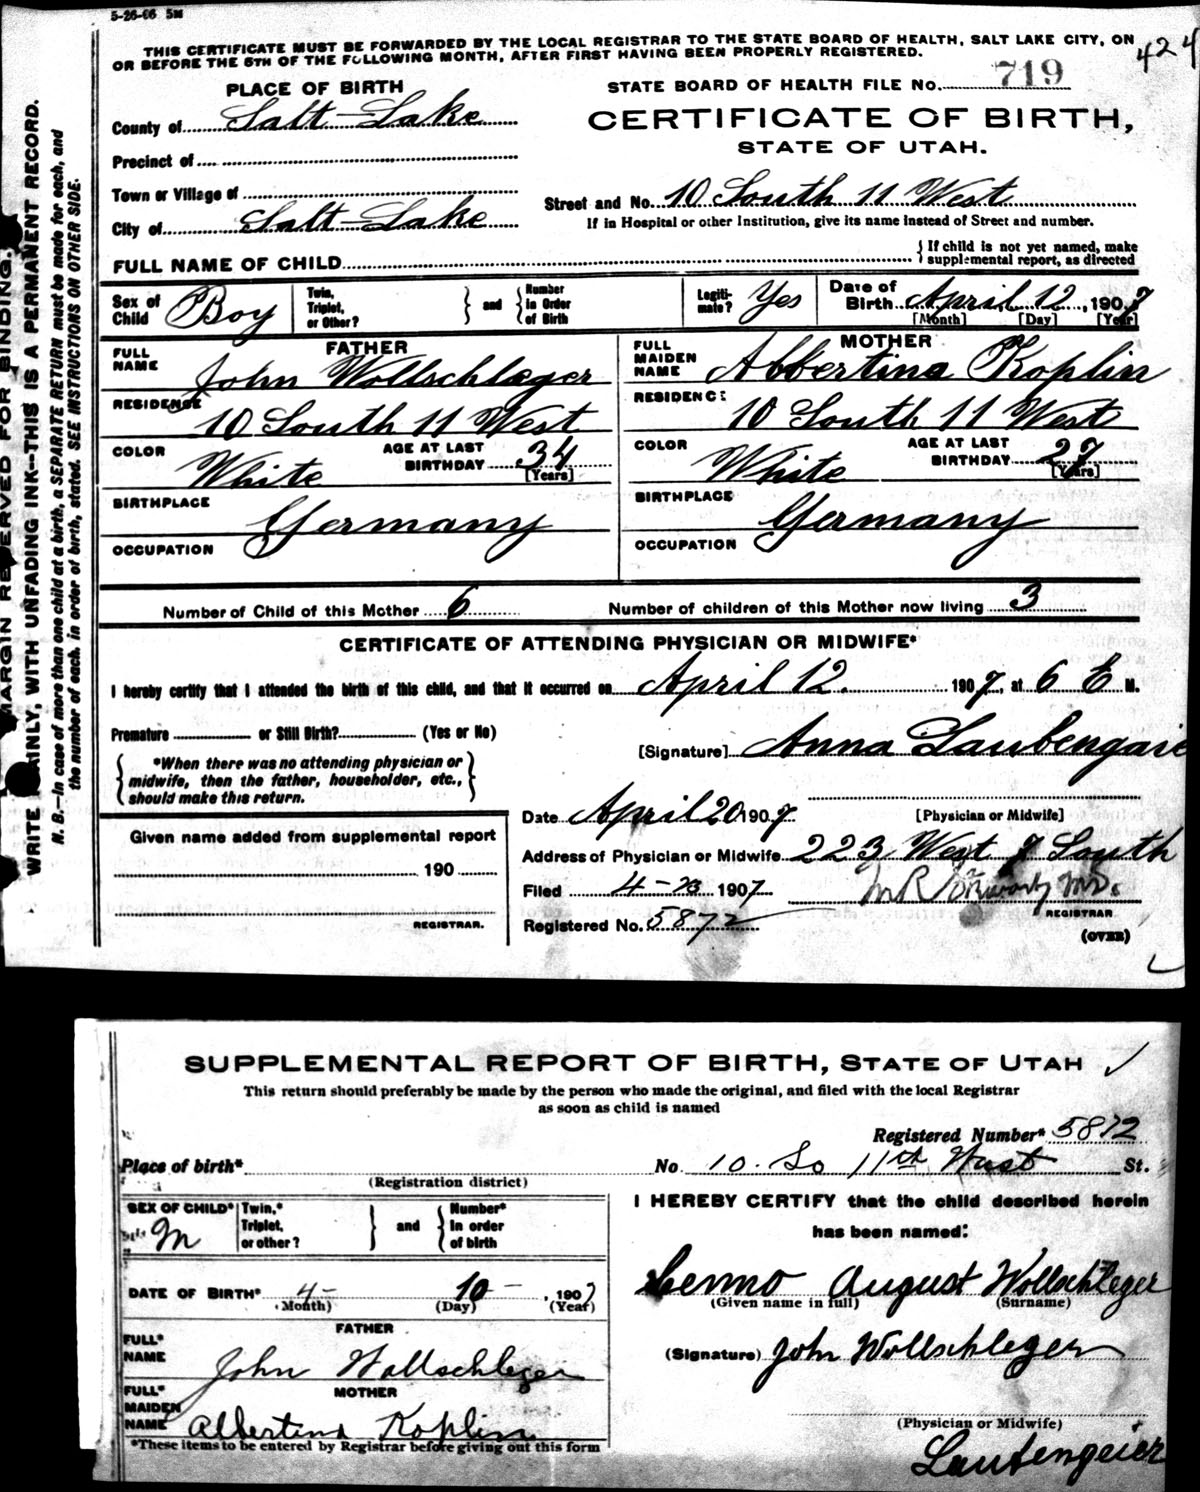 5-26-06 5M
THIS CERTIFICATE MUST BE FORWARDED BY THE LOCAL REGISTRAR TO THE STATE BOARD OF HEALTH, SALT LAKE CITY, ON
OR BEFORE THE 5TH OF THE FOLLOWING MONTH, AFTER FIRST HAVING BEEN PROPERLY REGISTERED.
424
PLACE OF BIRTH
STATE BOARD OF HEALTH FILE NO. 719
County of Salt-Lake
CERTIFICATE OF BIRTH,
STATE OF UTAH.
Precinct of
Town or Village of
Street and No. 10 South 11 West
City of Salt-Lake
If in Hospital or other Institution, give its name instead of Street and number.
FULL NAME OF CHILD
{ If child is not yet named, make
supplemental report, as directed
Sex of Child Boy
Twin, Triplet, or Other?
and
Number in Order of Birth
Legiti-mate? Yes
Date of Birth April 12, 1907
[Month] [Day] [Year]
FATHER
FULL NAME John Wollschlæger
RESIDENCE 10 South 11 West
COLOR White
AGE AT LAST BIRTHDAY 34 [Years]
BIRTHPLACE Germany
OCCUPATION
MOTHER
FULL MAIDEN NAME Abbertina Koplin
RESIDENCE 10 South 11 West
COLOR White
AGE AT LAST BIRTHDAY 27 [Years]
BIRTHPLACE Germany
OCCUPATION
Number of Child of this Mother 6
Number of children of this Mother now living 3
CERTIFICATE OF ATTENDING PHYSICIAN OR MIDWIFE*
I hereby certify that I attended the birth of this child, and that it occurred on April 12. 1907, at 6 M.
Premature or Still Birth? (Yes or No)
*When there was no attending physician or
midwife, then the father, householder, etc.,
should make this return.
[Signature] Anna
[Physician or Midwife]
Given name added from supplemental report
190
REGISTRAR.
Date April 20 1907
Address of Physician or Midwife 223 West 7 South
Filed 4-23 1907
REGISTRAR
Registered No. 5872
(OVER)
MARGIN RESERVED FOR BINDING.
WRITE PLAINLY, WITH UNFADING INK--THIS IS A PERMANENT RECORD.
N. B.--In case of more than one child at a birth, a SEPARATE RETURN must be made for each, and
the number of each, in order of birth, stated. SEE INSTRUCTIONS ON OTHER SIDE.
SUPPLEMENTAL REPORT OF BIRTH, STATE OF UTAH
This return should preferably be made by the person who made the original, and filed with the local Registrar
as soon as child is named
Registered Number* 5872
Place of birth*
(Registration district)
No 10. So 11th West St.
SEX OF CHILD* M
Twin,* Triplet, or other?
and
Number* In order of birth
DATE OF BIRTH* 4- 10-, 1907
(Month) (Day) (Year)
FATHER
FULL* NAME John Wollschleger
MOTHER
FULL* MAIDEN NAME Albertina Koplin
*These items to be entered by Registrar before giving out this form
I HEREBY CERTIFY that the child described herein
has been named:
August Wollschleger
(Given name in full) (Surname)
(Signature) John Wollschleger
(Physician or Midwife)